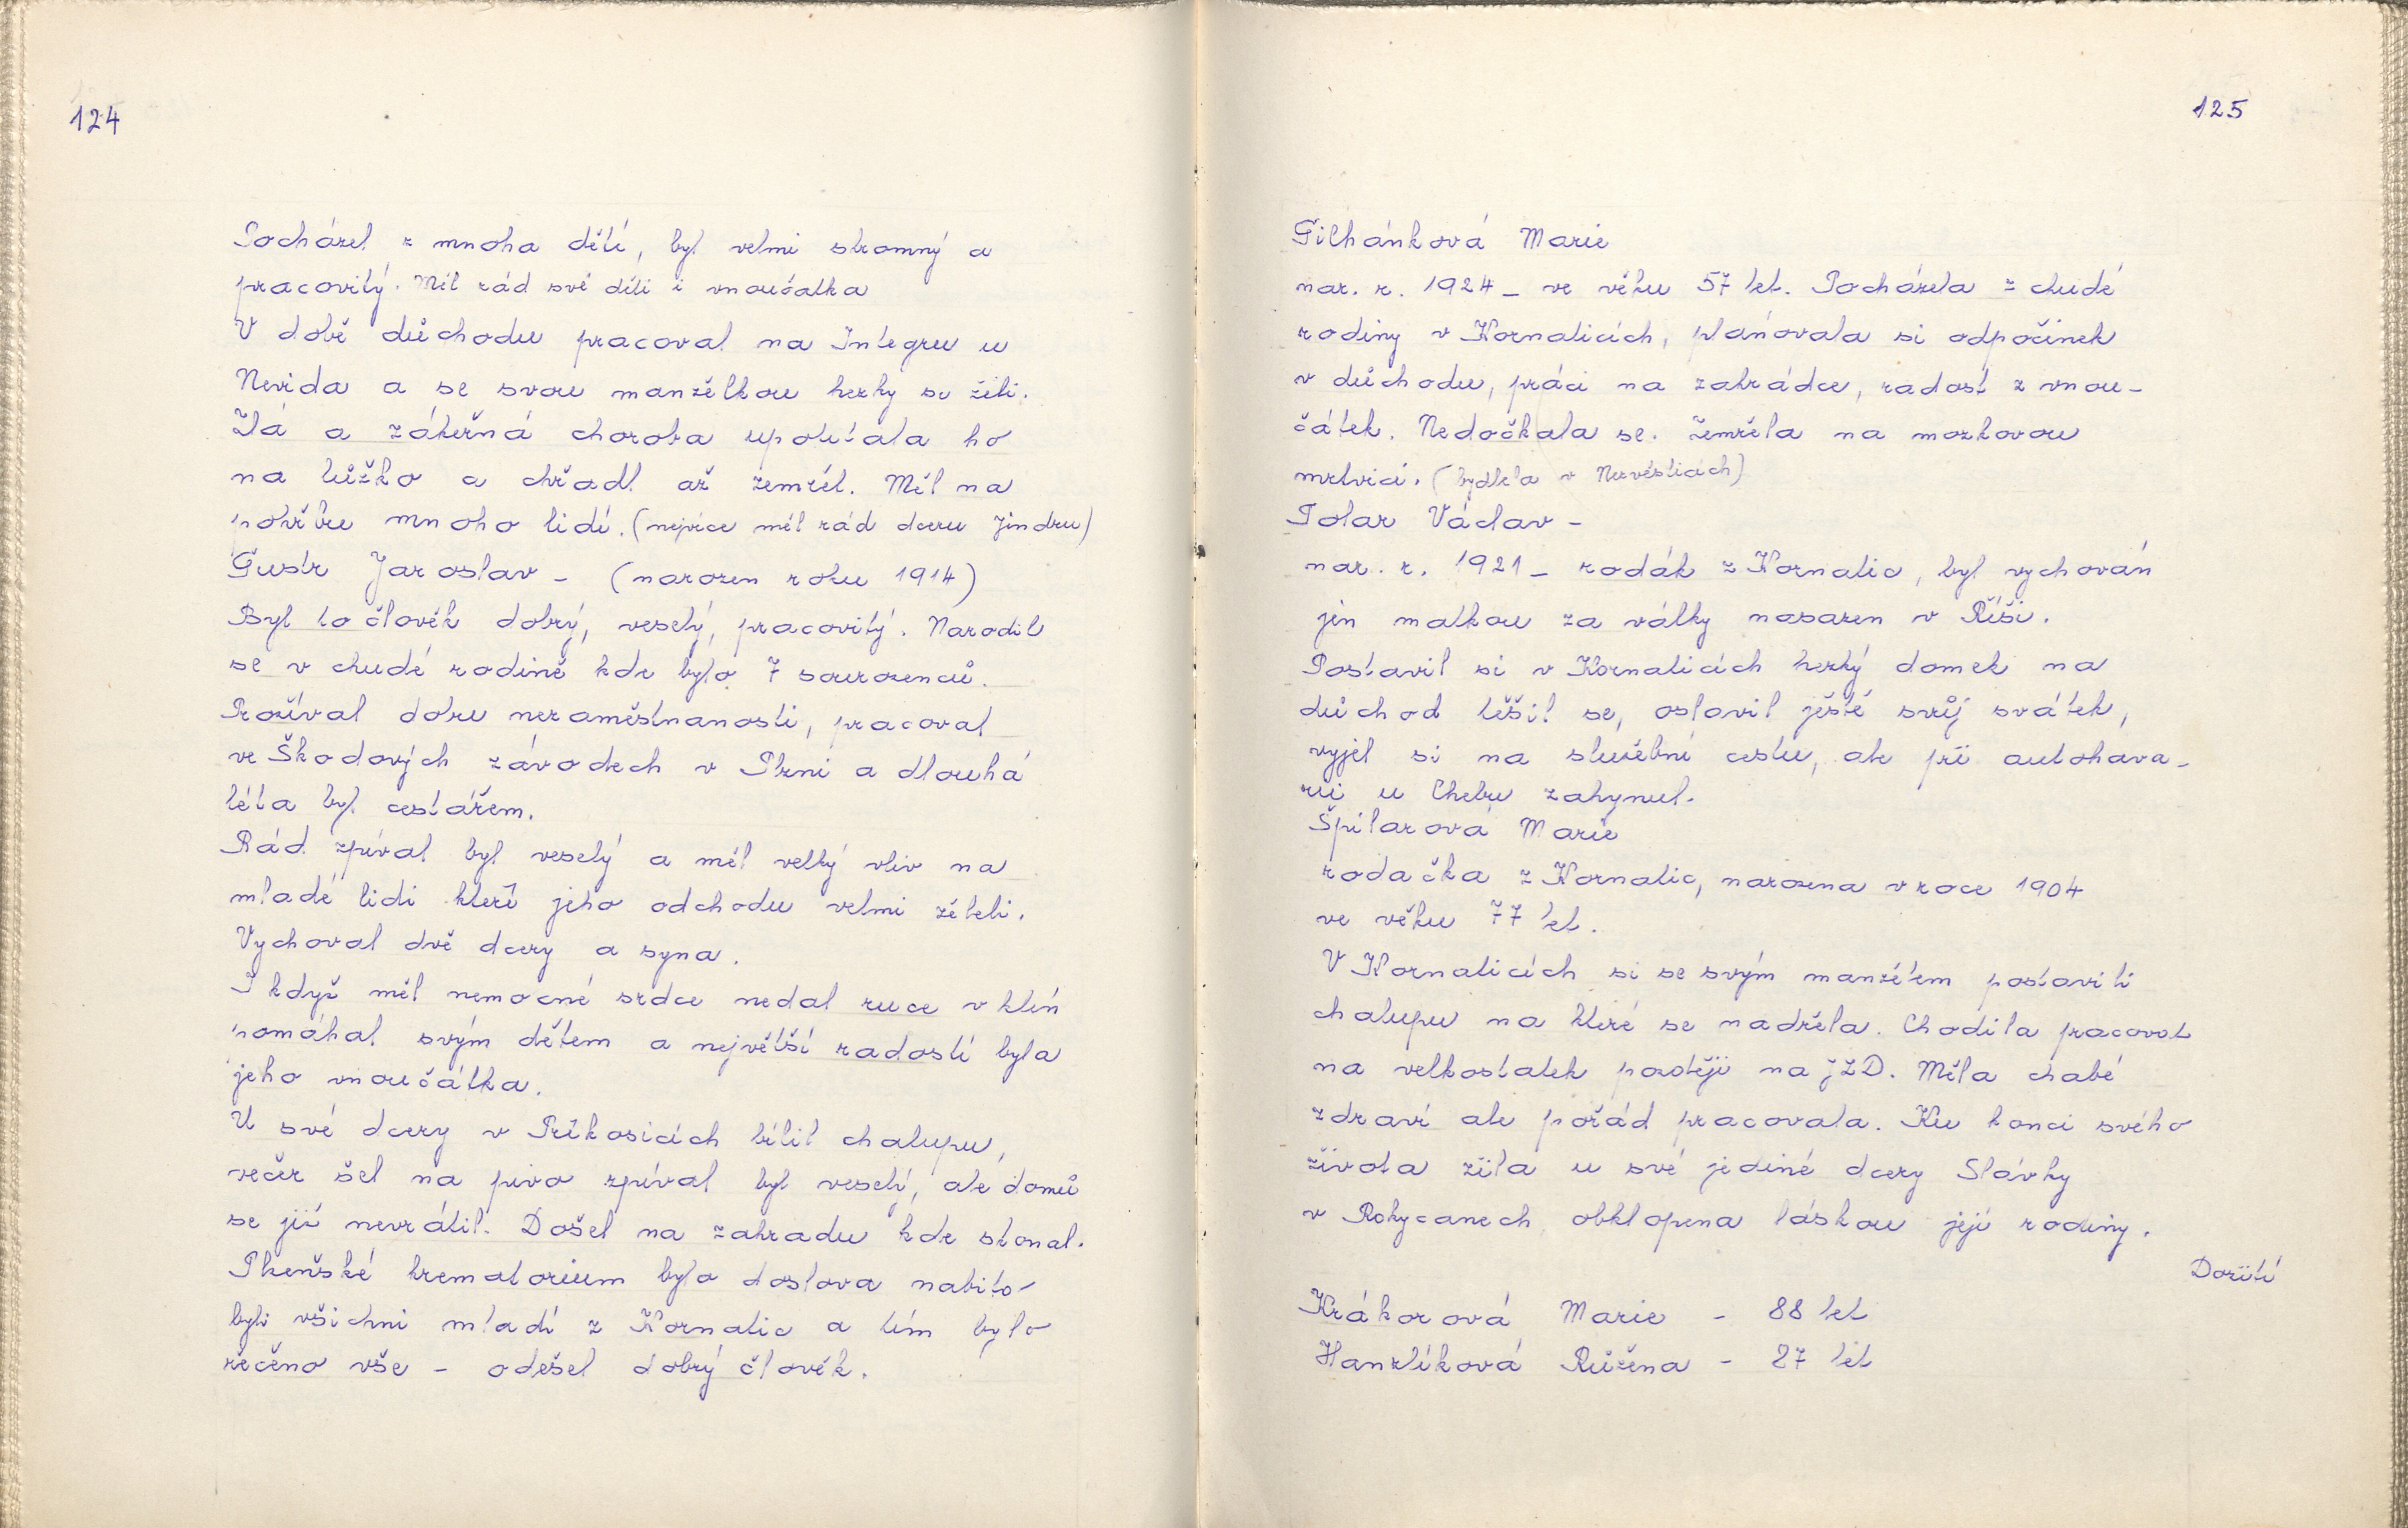 124
Pocházel z mnoha dětí, byl velmi skromný a
pracovitý. Měl rád své děti i vnoučatka
V době důchodu pracoval na Integru u
Nevida a se svou manželkou hezky se žili.
Zlá a zákeřná choroba upoutala ho
na lůžko a chřadl až zemřel. Měl na
pohřbu mnoho lidí. (nejvíce měl rád dceru Jindru)
Gustr Jaroslav - (narozen roku 1914)
Byl to člověk dobrý, veselý, pracovitý. Narodil
se v chudé rodině kde bylo 7 sourozenců.
Prožíval dobu nezaměstnanosti, pracoval
ve Škodových závodech v Plzni a dlouhá
léta byl cestářem.
Rád zpíval byl veselý a měl velký vliv na
mladé lidi kteří jeho odchodu velmi želeli.
Vychoval dvě dcery a syna.
I když měl nemocné srdce nedal ruce v klín
pomáhal svým dětem a největší radostí byla
jeho vnoučátka.
U své dcery v Příkosicích bílil chalupu,
večer šel na pivo zpíval byl veselý, ale domů
se již nevrátil. Došel na zahradu kde skonal.
Plzeňské krematorium bylo doslova nabito
byli všichni mladí z Kornatic a tím bylo
řečeno vše - odešel dobrý člověk.
125
Marie
nar. r. 1924 - ve věku 57 let. Pocházela z chudé
rodiny v Kornaticích, plánovala si odpočinek
v důchodu, práci na zahrádce, radost z vnou-
čátek. Nedočkala se. Zemřela na mozkovou
mrtvici. (bydlela v Nezvěsticích)
Polar Václav -
nar. r. 1921 - rodák z Kornatic, byl vychován
jen matkou za války nasazen v Říši.
Postavil si v Kornaticích hezký domek na
důchod těšil se, oslavil ještě svůj svátek,
vyjel si na služební cestu, ale při autohava-
rii u Chebu zahynul.
Špilarová Marie
rodačka z Kornatic, narozena v roce 1904
ve věku 77 let.
V Kornaticích si se svým manželem postavili
chalupu na které se nadřela. Chodila pracovat
na velkostatek později na JZD. Měla chabé
zdraví ale pořád pracovala. Ku konci svého
života žila u své jediné dcery Slávky
v Rokycanech obklopena láskou její rodiny.
Dožití
Krákorová Marie - 88 let
Hanzlíková Růžena - 87 let